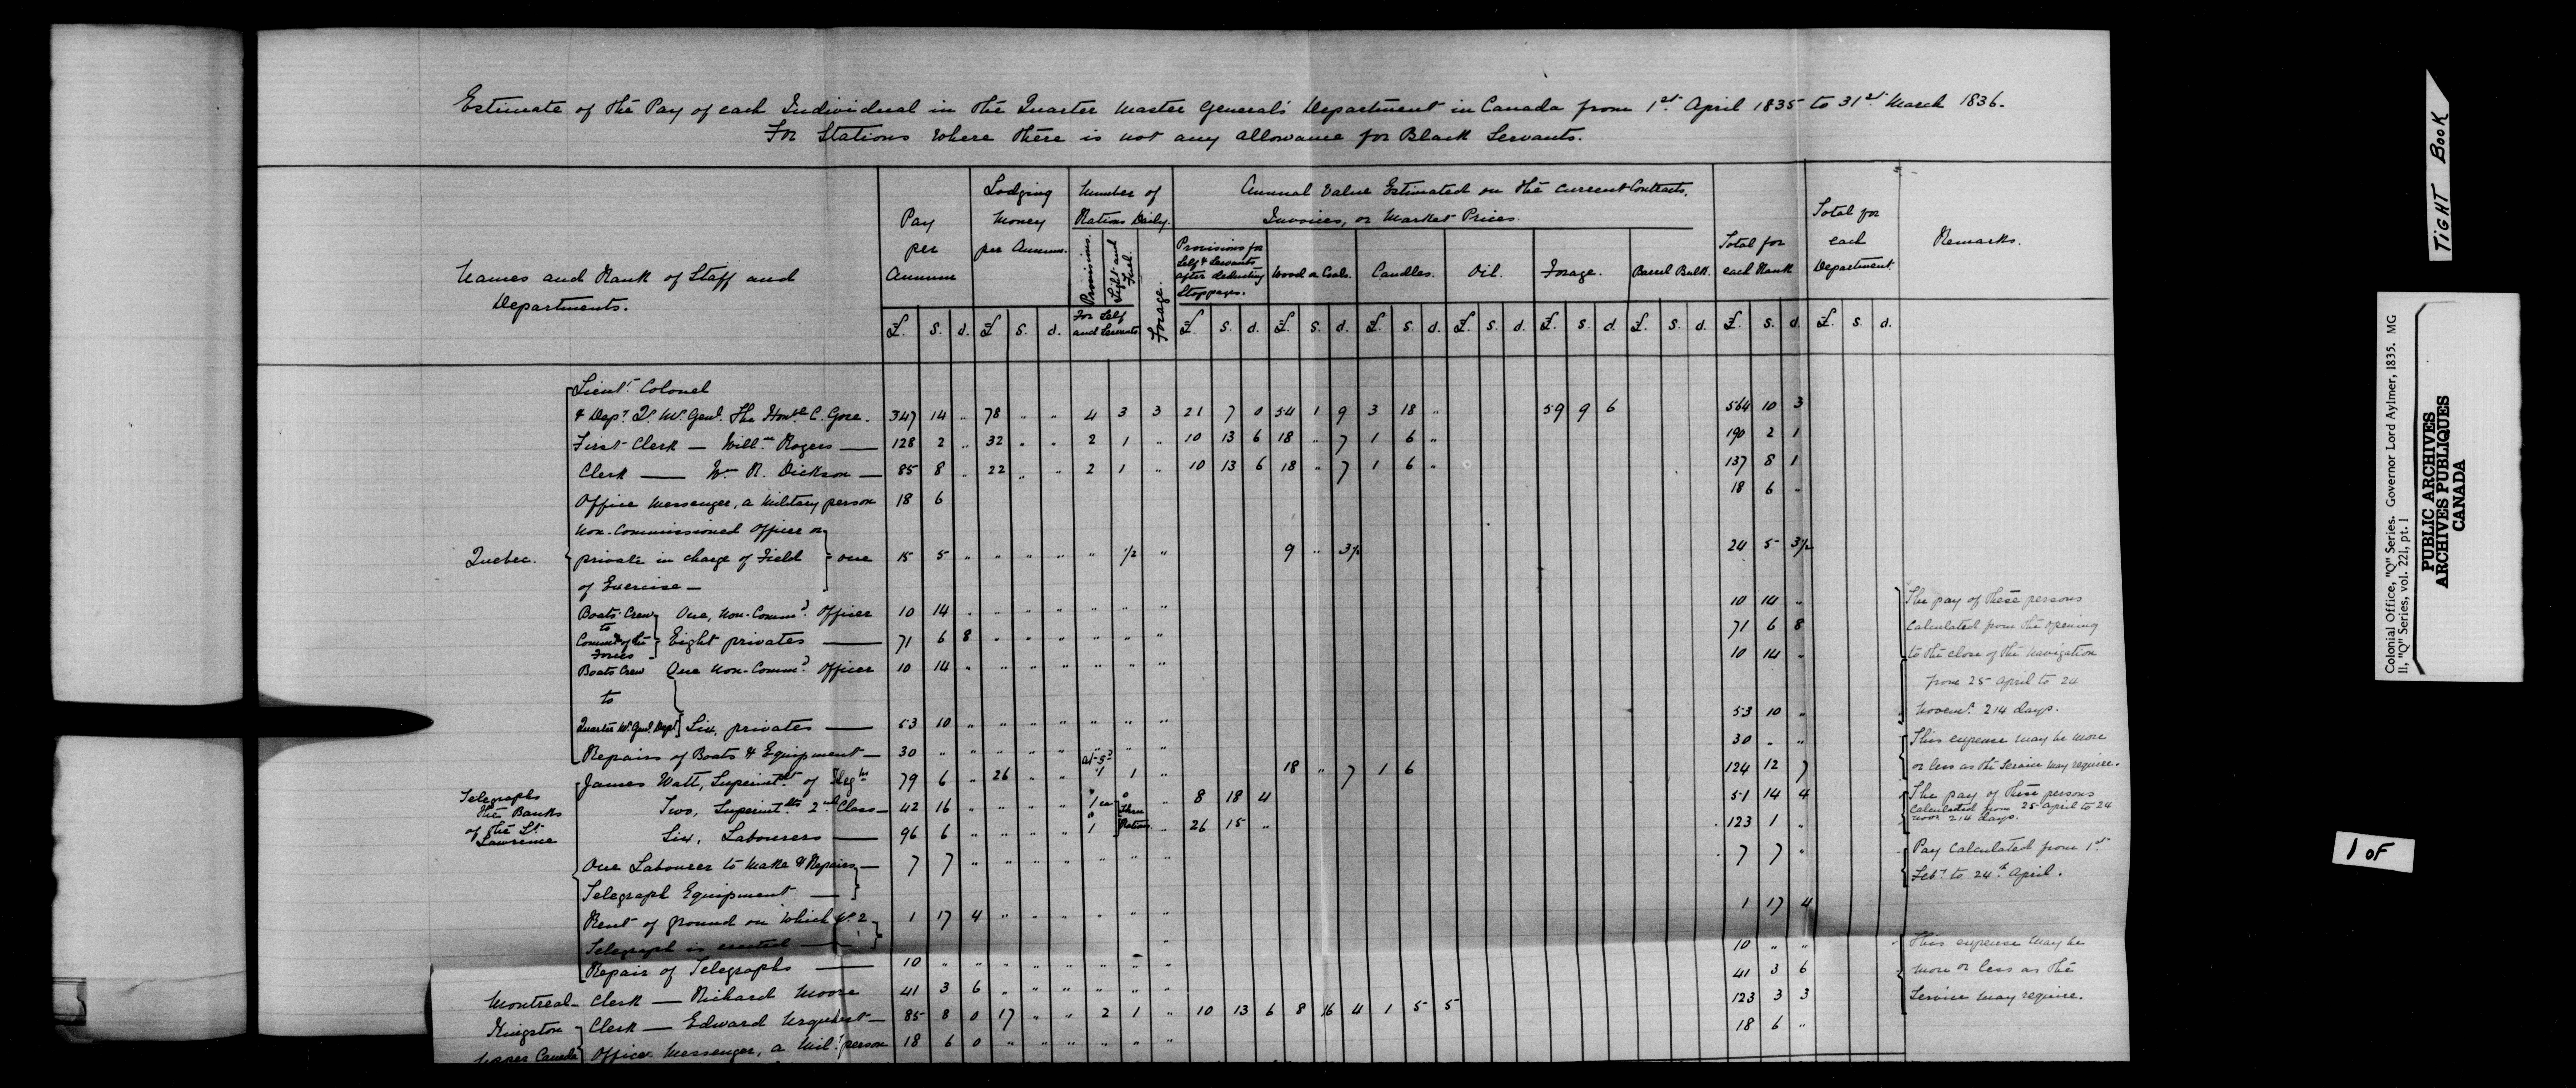 Estimate of the Pay of each Individual in the Quarter Master General's Department in Canada from 1st April 1835 to 31st March 1836.
For Stations where there is not any allowance for Black Servants.
Names and Rank of Staff and Departments. | Pay per Annum | Lodging Money per Annum. | Number of Rations Daily. | Annual Value Estimated on the current Contracts, Invoices, or Market Prices. | Total for each Rank | Total for each Department. | Remarks.
Provisions. | Light and Fuel. | For Self and Servants | Forage. | Provisions for Self & Servants after deducting Stoppages. | Wood or Coals. | Candles. | Oil. | Forage. | Barrel Bulk.
£. s. d. £ s. d. £ s. d. £. s. d. £. s. d. £. s. d. £. s. d. £. s. d. £. s. d. £. s. d.
Quebec.
Lieut. Colonel
& Depy. Qr. Mr. Genl. The Honble C. Gore. 347 14 " 78 " " 4 3 3 21 7 0 54 1 9 3 18 " 59 9 6 564 10 3
First Clerk — Willm Rogers — 128 2 " 32 " " 2 1 " 10 13 6 18 " 7 1 6 " 190 2 1
Clerk — Wm R. Dickson — 85 8 " 22 " " 2 1 " 10 13 6 18 " 7 1 6 " 137 8 1
Office Messenger, a Military person 18 6 18 6 "
Non-Commissioned Officer or
private in charge of Field } one 15 5 " " " " " 1/2 " 9 " 3 1/2 24 5 3 1/2
of Exercise —
Boats Crew to Commr of the Forces } One, Non-Commd. Officer 10 14 " " " " " " " 10 14 "
Eight privates — 71 6 8 " " " " " " 71 6 8
The pay of these persons
calculated from the opening
to the close of the navigation
from 25 April to 24
Novemr. 214 days.
Boats Crew One Non-Commd. Officer 10 14 " " " " " " " 10 14 "
to
Quarter Mr. Genl. Dept. } Six, privates — 53 10 " " " " " " " 53 10 "
Repairs of Boats & Equipment — 30 " " " " " " " 30 " "
This expense may be more
or less as the Service may require.
Telegraphs
the Banks
of the St.
Lawrence
James Watt, Superintdt of Teleghs 79 6 " 26 " " 1 1 " 18 " 7 1 6 124 12 7
Two, Superintdts 2nd Class — 42 16 " " " " 1 Three Rations " 8 18 4 51 14 4
Six, Labourers — 96 6 " " " " 1 " 26 15 " 123 1 "
The pay of these persons
calculated from 25 April to 24
Novr 214 days.
One Labourer to Make & Repairs — 7 7 " " " " " " " 7 7 "
Telegraph Equipment —
Pay Calculated from 1st
Feby to 24th April.
Rent of ground on which No. 2 1 17 4 " " " " " " 1 17 4
Telegraph is erected —
Repair of Telegraphs — 10 " " " " " " " " 10 " "
This expense may be
more or less as the
Service may require.
Montreal - Clerk — Richard Moore 41 3 6 " " " " " " 41 3 6
Kingston - Clerk — Edward Urquhart — 85 8 0 17 " " 2 1 " 10 13 6 8 16 4 1 5 5 123 3 3
Upper Canada Office Messenger, a Mily. person 18 6 0 " " " " " " 18 6 "
TIGHT BOOK
Colonial Office, "Q" Series. Governor Lord Aylmer, 1835. MG
11, "Q" Series, vol. 221, pt. 1
PUBLIC ARCHIVES
ARCHIVES PUBLIQUES
CANADA
1 OF